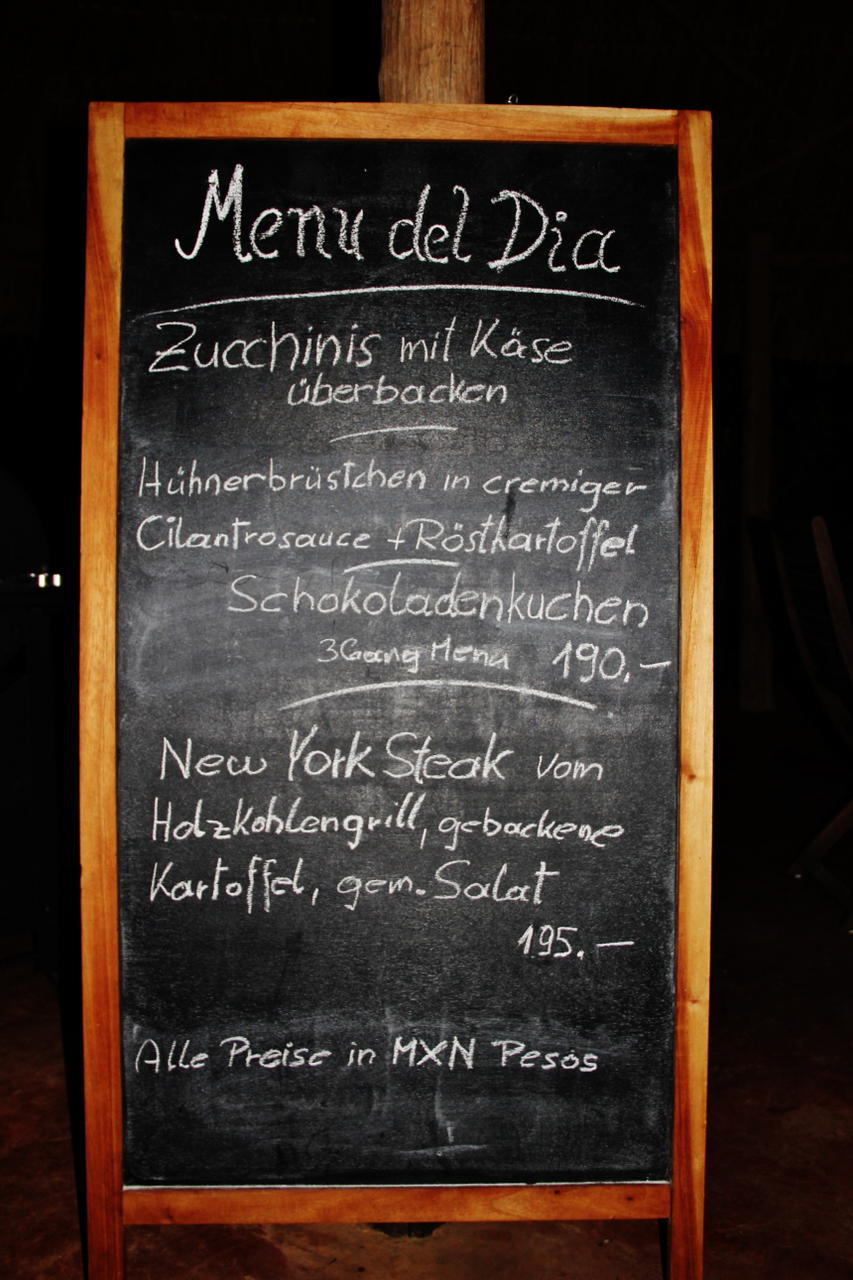 Menu del Dia
Zucchinis mit Käse
überbacken
Hühnerbrüstchen in cremiger
Cilantrosauce + Röstkartoffel
Schokoladenkuchen
3Gang Menu 190,-
New York Steak vom
Holzkohlengrill, gebackene
Kartoffel, gem. Salat
195.-
Alle Preise in MXN Pesos